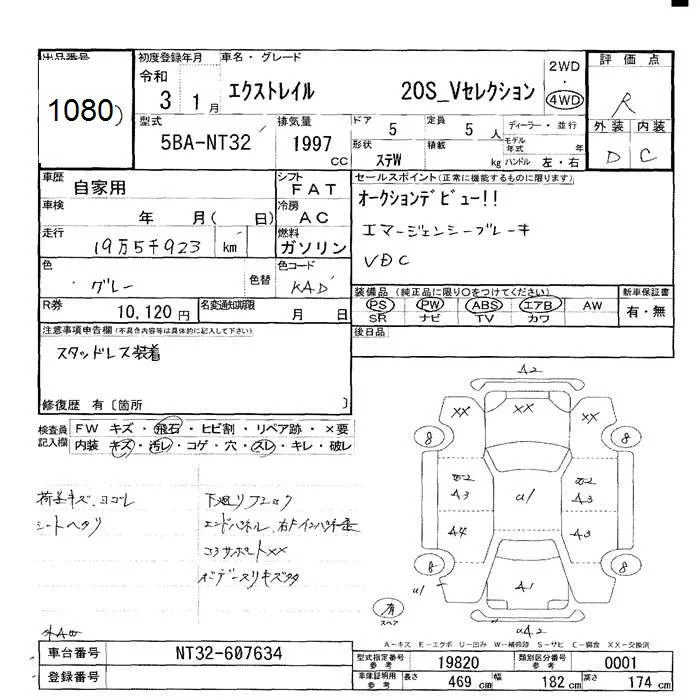 出品番号 初度登録年月 車名・グレード 2WD・4WD 評価点
1080) 令和 3 1月 エクストレイル 20S_Vセレクション R
型式 5BA-NT32 排気量 1997 cc ドア 5 定員 5人 ディーラー・並行 外装 内装
形状 ステW 積載 kg モデル年式 年 ハンドル 左・右 D C
車歴 自家用 シフト FAT セールスポイント(正常に機能するものに限ります)
車検 年 月( 日) 冷房 AC オークションデビュー!!
走行 19万5千923 km 燃料 ガソリン エマージェンシーブレーキ
VDC
色 グレー 色替 色コード KAD
装備品 (純正品に限り○をつけてください) 新車保証書
PS PW ABS エアB AW 有・無
SR ナビ TV カワ
R券 10,120円 名変通知期限 月 日
注意事項申告欄(不具合内容等は具体的に記入して下さい) 後日品
スタッドレス装着
修復歴 有〔箇所 〕
検査員記入欄 FW キズ・飛石・ヒビ割・リペア跡・×要
内装 キズ・汚レ・コゲ・穴・スレ・キレ・破レ
荷室キズ、ヨゴレ
シートヘタリ
下廻りフロック
エンドパネル、右Fインパネ歪
コアサポートXX
ボデースリキズタタ
A2
XX XX XX
8 8
A3 a1 A3
A4 A3
8 8
a1 A1
有 スペア
aA2
A-キズ E-エクボ U-凹み W-補修跡 S-サビ C-腐食 XX-交換済
車台番号 NT32-607634
型式指定番号 参考 19820 類別区分番号 参考 0001
登録番号
車庫証明用 参考 長さ 469 cm 幅 182 cm 高さ 174 cm